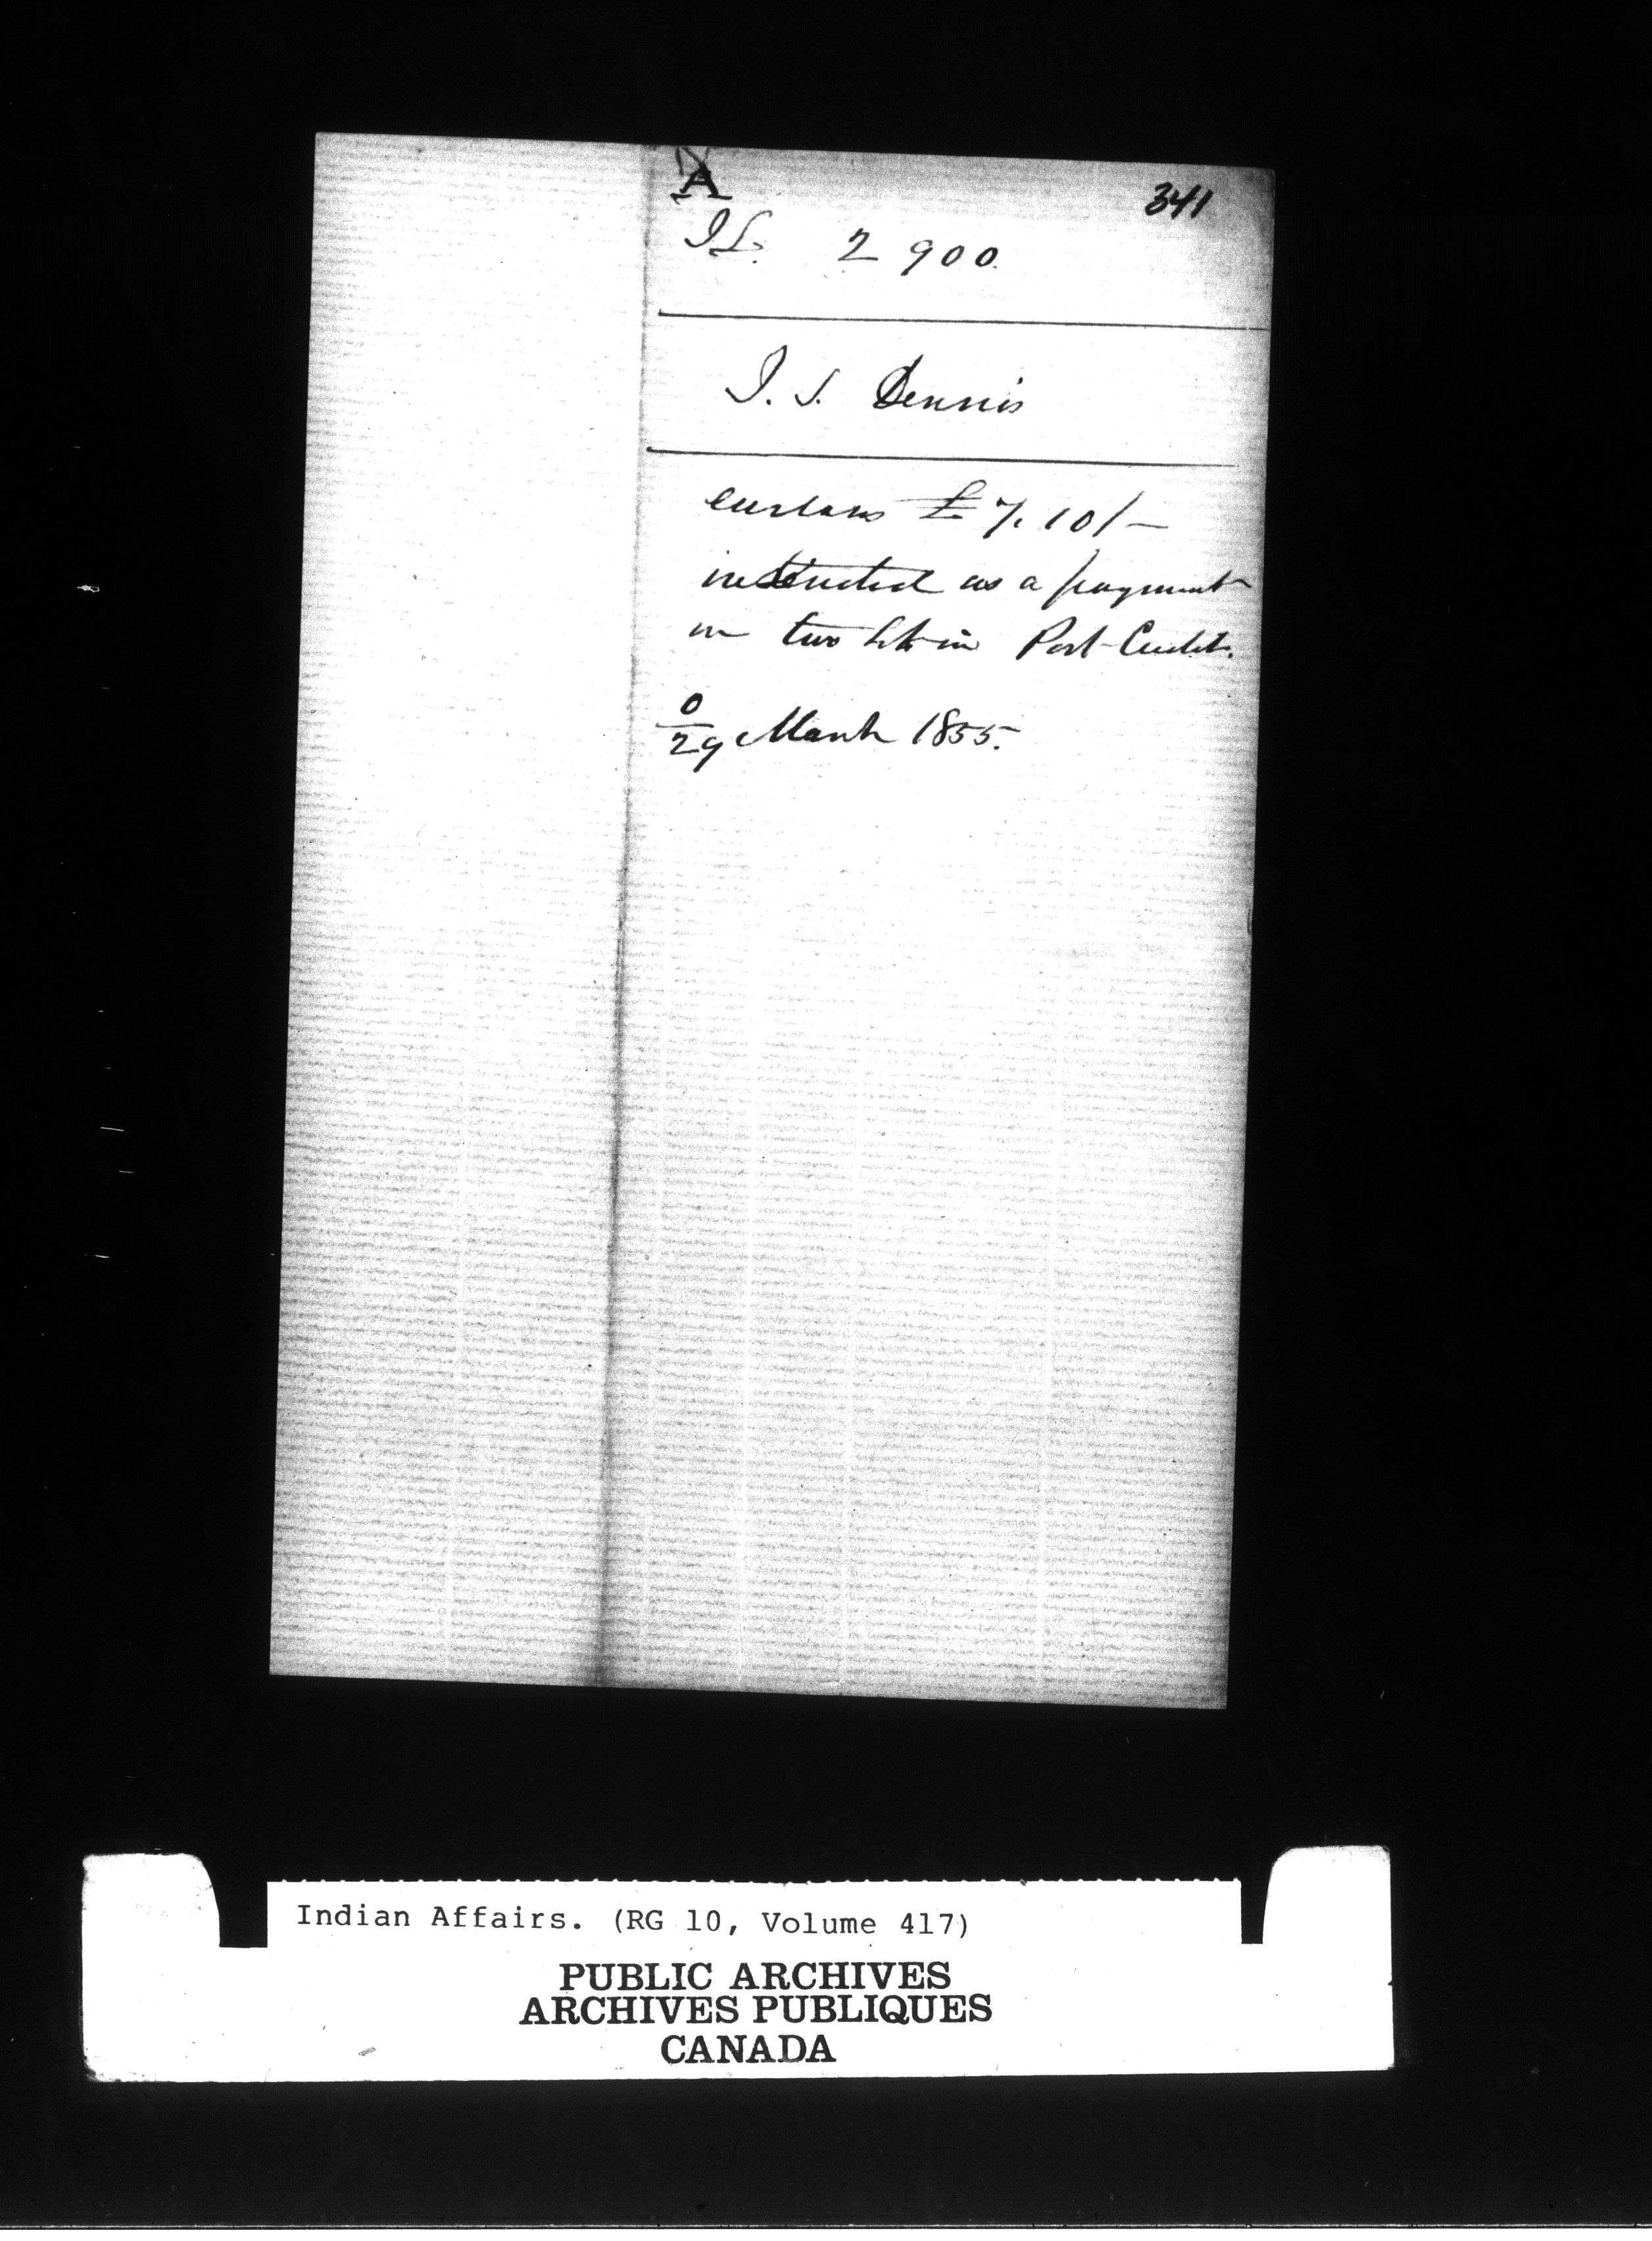 A
341
I L. 2900.
J. S. Dennis
encloses £7.10/-
intended as a payment
on two lots in Port Credit.
0/29 March 1855.
Indian Affairs. (RG 10, Volume 417)
PUBLIC ARCHIVES
ARCHIVES PUBLIQUES
CANADA